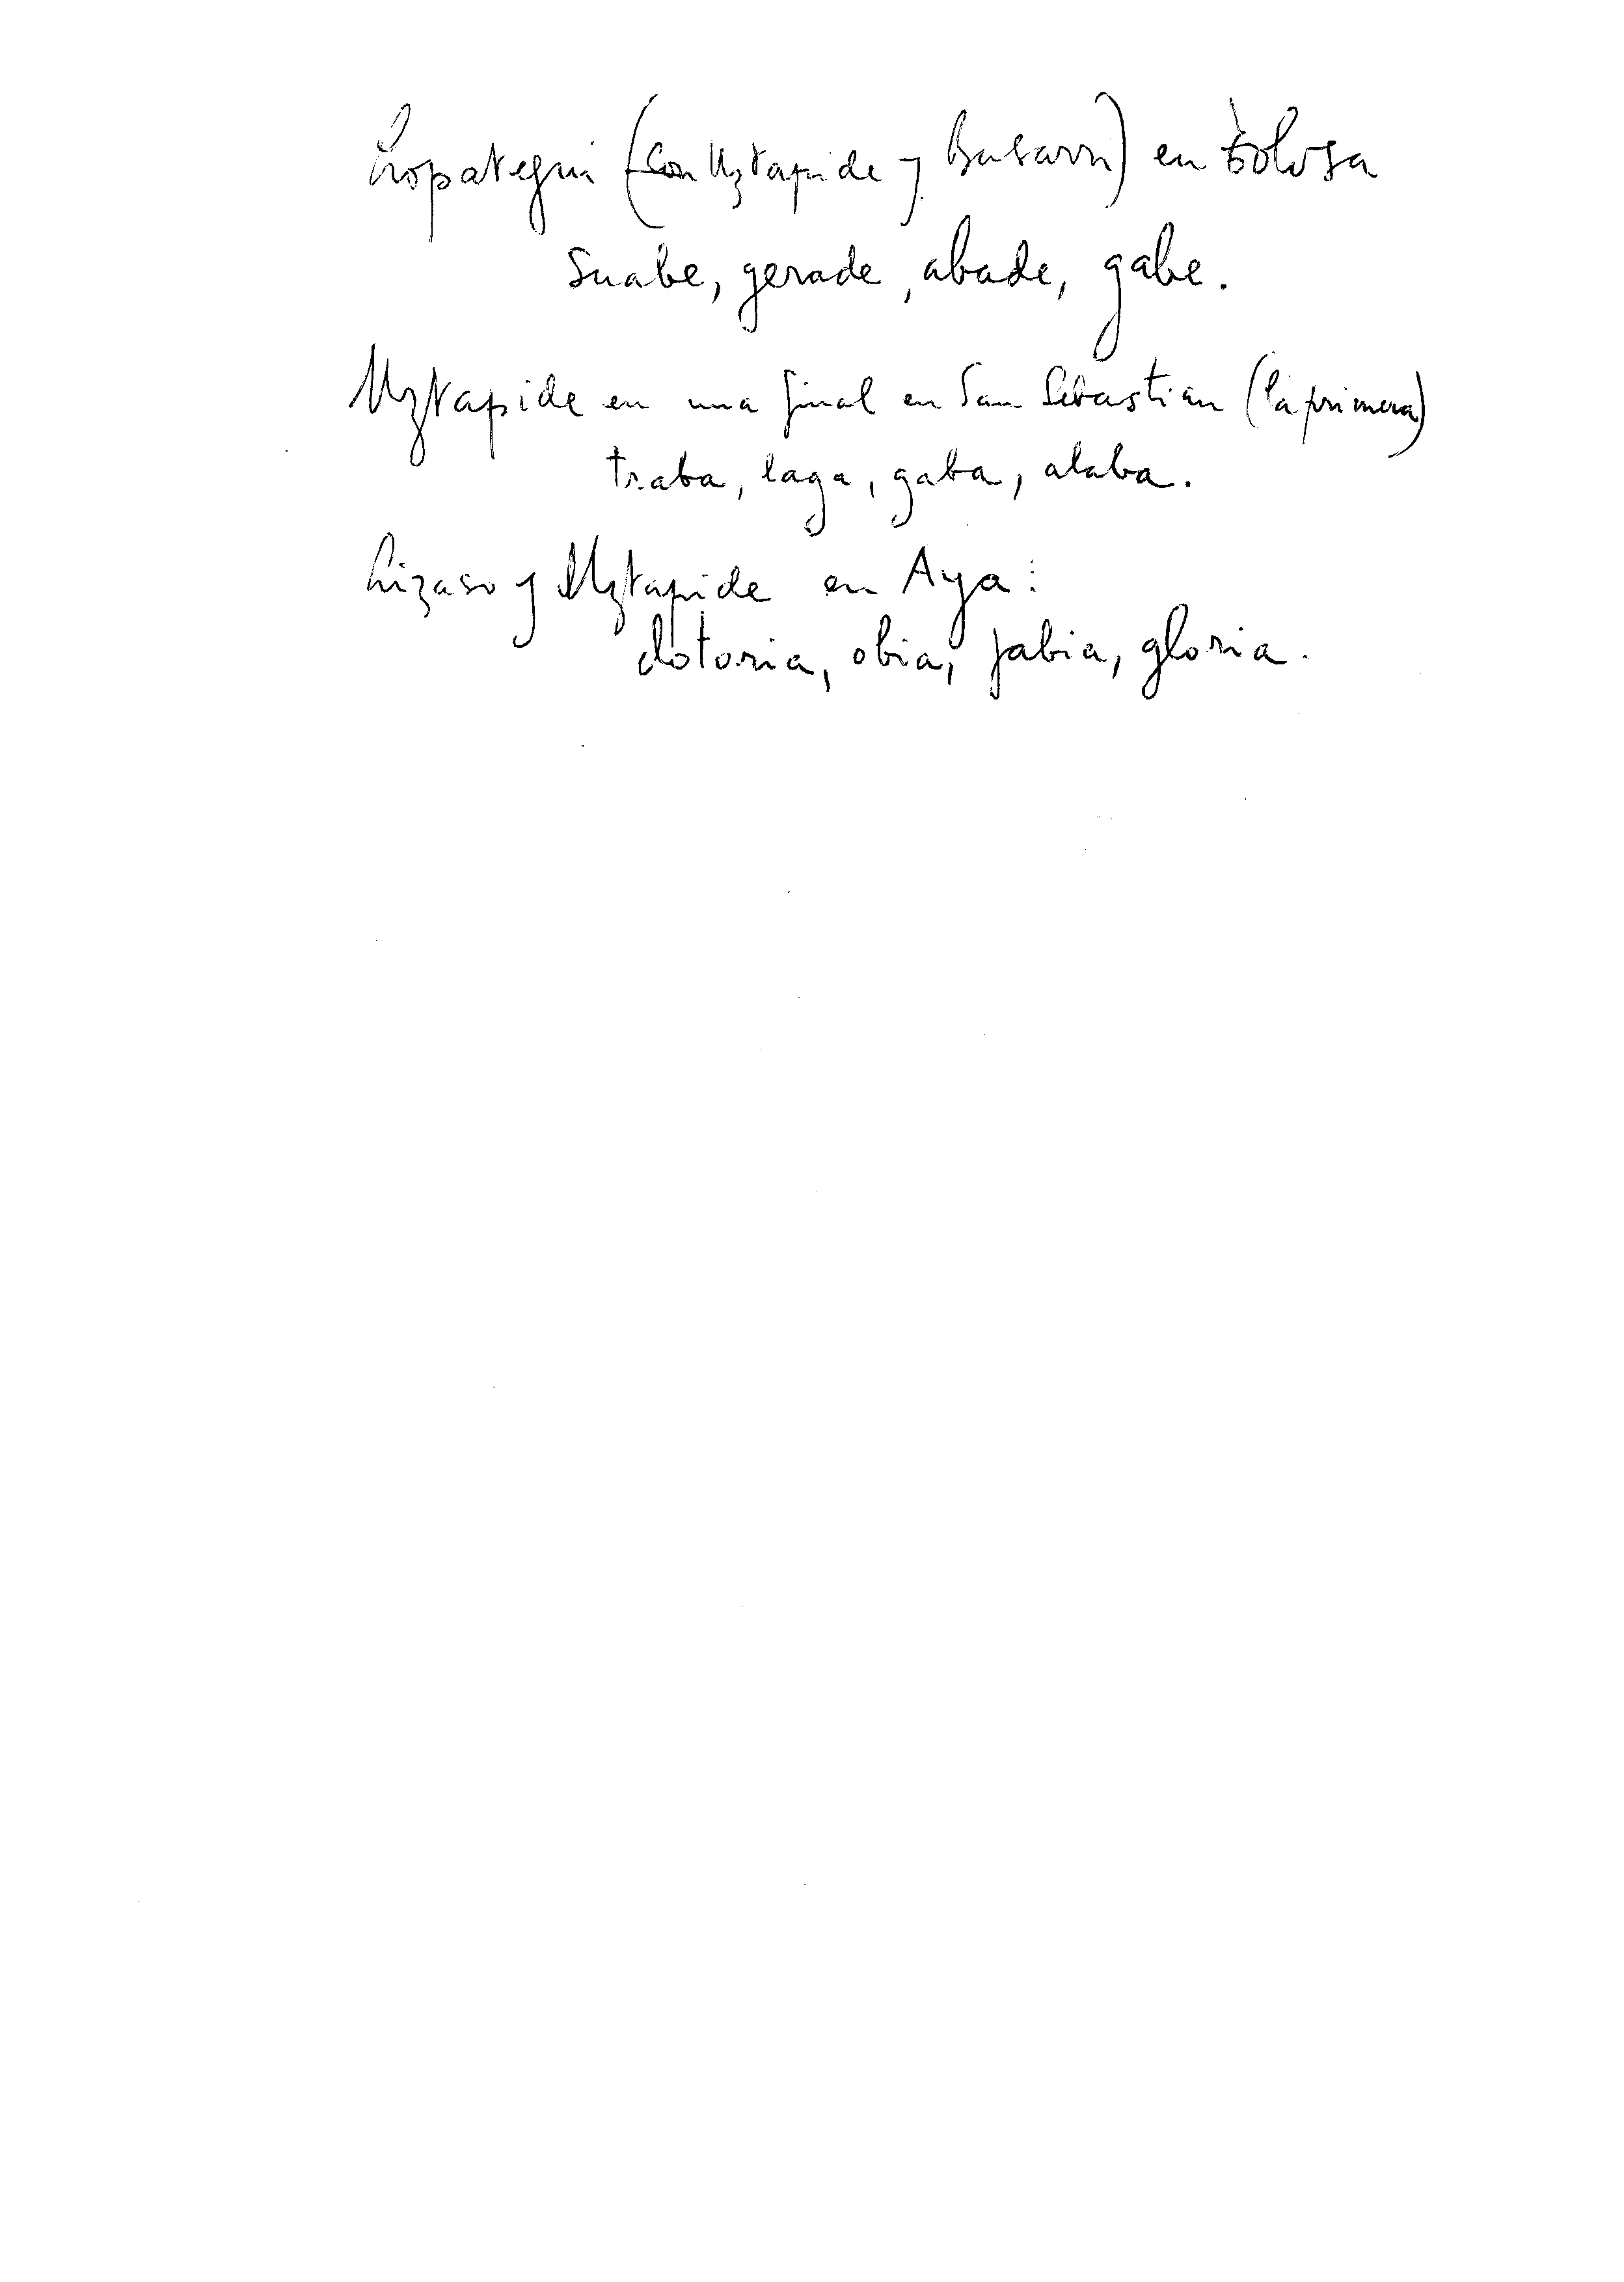 Lopategui (con Uztapide y Basarri) en Tolosa
suabe, gerade, abade, gabe.
Uztapide en una final en San Sebastian (la primera)
traba, laga, gaba, alaba.
Lizaso y Uztapide en Aya:
dotoria, obia, jabia, gloria.